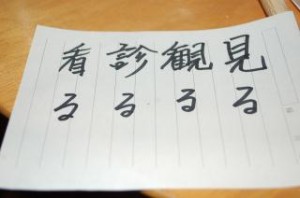 見る
観る
診る
看る